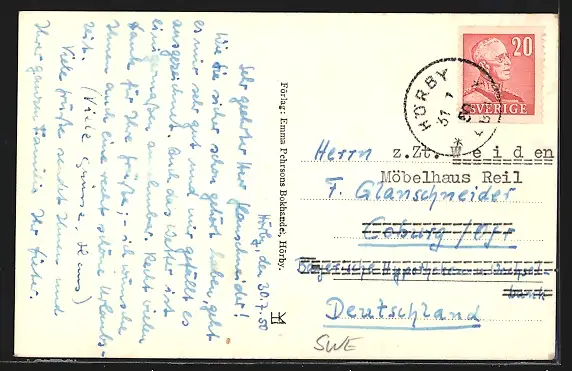 Hörby, den 30.7.50
Sehr geehrter Herr Glanschneider!
Wie Sie sicher schon gehört haben, geht
es mir sehr gut und mir gefällt es
ausgezeichnet. Auch das Wetter ist
einigermaßen annehmbar. Recht vielen
Dank für Ihre Grüße, - ich wünsche
Ihnen auch eine recht schöne Urlaubs-
zeit. (Viele Grüsse, Hans)
Viele Grüße sendet Ihnen und
Ihrer ganzen Familie Ihr
Förlag: Emma Pehrsons Bokhandel, Hörby.
HÖRBY
31 7
50
20
SVERIGE
Herrn z.Zt. Weiden
Möbelhaus Reil
F. Glanschneider
Coburg / Ofr
Bayerische Hypotheken u. Wechsel-
bank
Deutschland
SWE